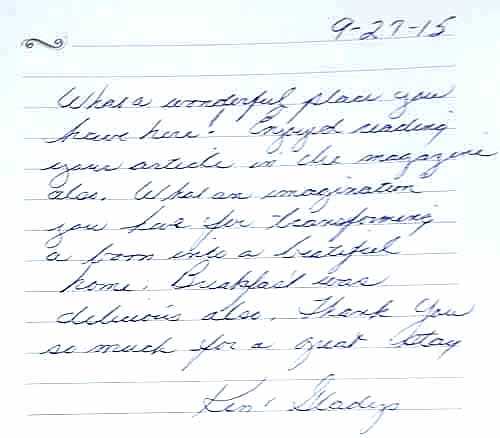 9-27-15
What a wonderful place you
have here. Enjoyed reading
your article in the magazine
also. What an imagination
you have for transforming
a barn into a beatiful
home. Breakfast was
delicious also. Thank You
so much for a great stay
Ken & Gladys